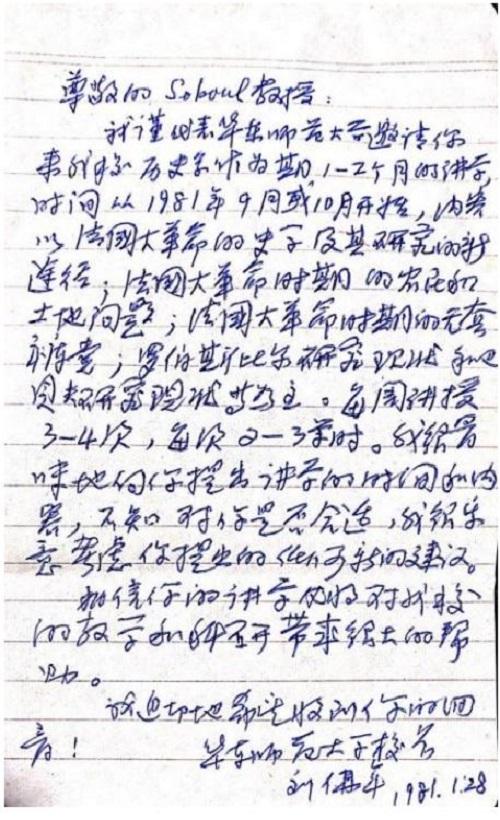 尊敬的 Soboul 教授：
我谨代表华东师范大学邀请你
来我校历史系作为期1-2个月的讲学，
时间从1981年9月或10月开始，内容
以法国大革命的史学及其研究的新
途径；法国大革命时期的农民和
土地问题；法国大革命时期的无套
裤汉；罗伯斯比尔研究现状和
研究现状等为主。每周讲授
3-4次，每次2-3学时。我很冒
昧地向你提出讲学的时间和内
容，不知对你是否合适，我很乐
意考虑你提出的任何新的建议。
相信你的讲学必将对我校
的教学和科研带来很大的帮
助。
我迫切地希望收到你的回
音！ 华东师范大学校长
刘佛年，1981.1.28